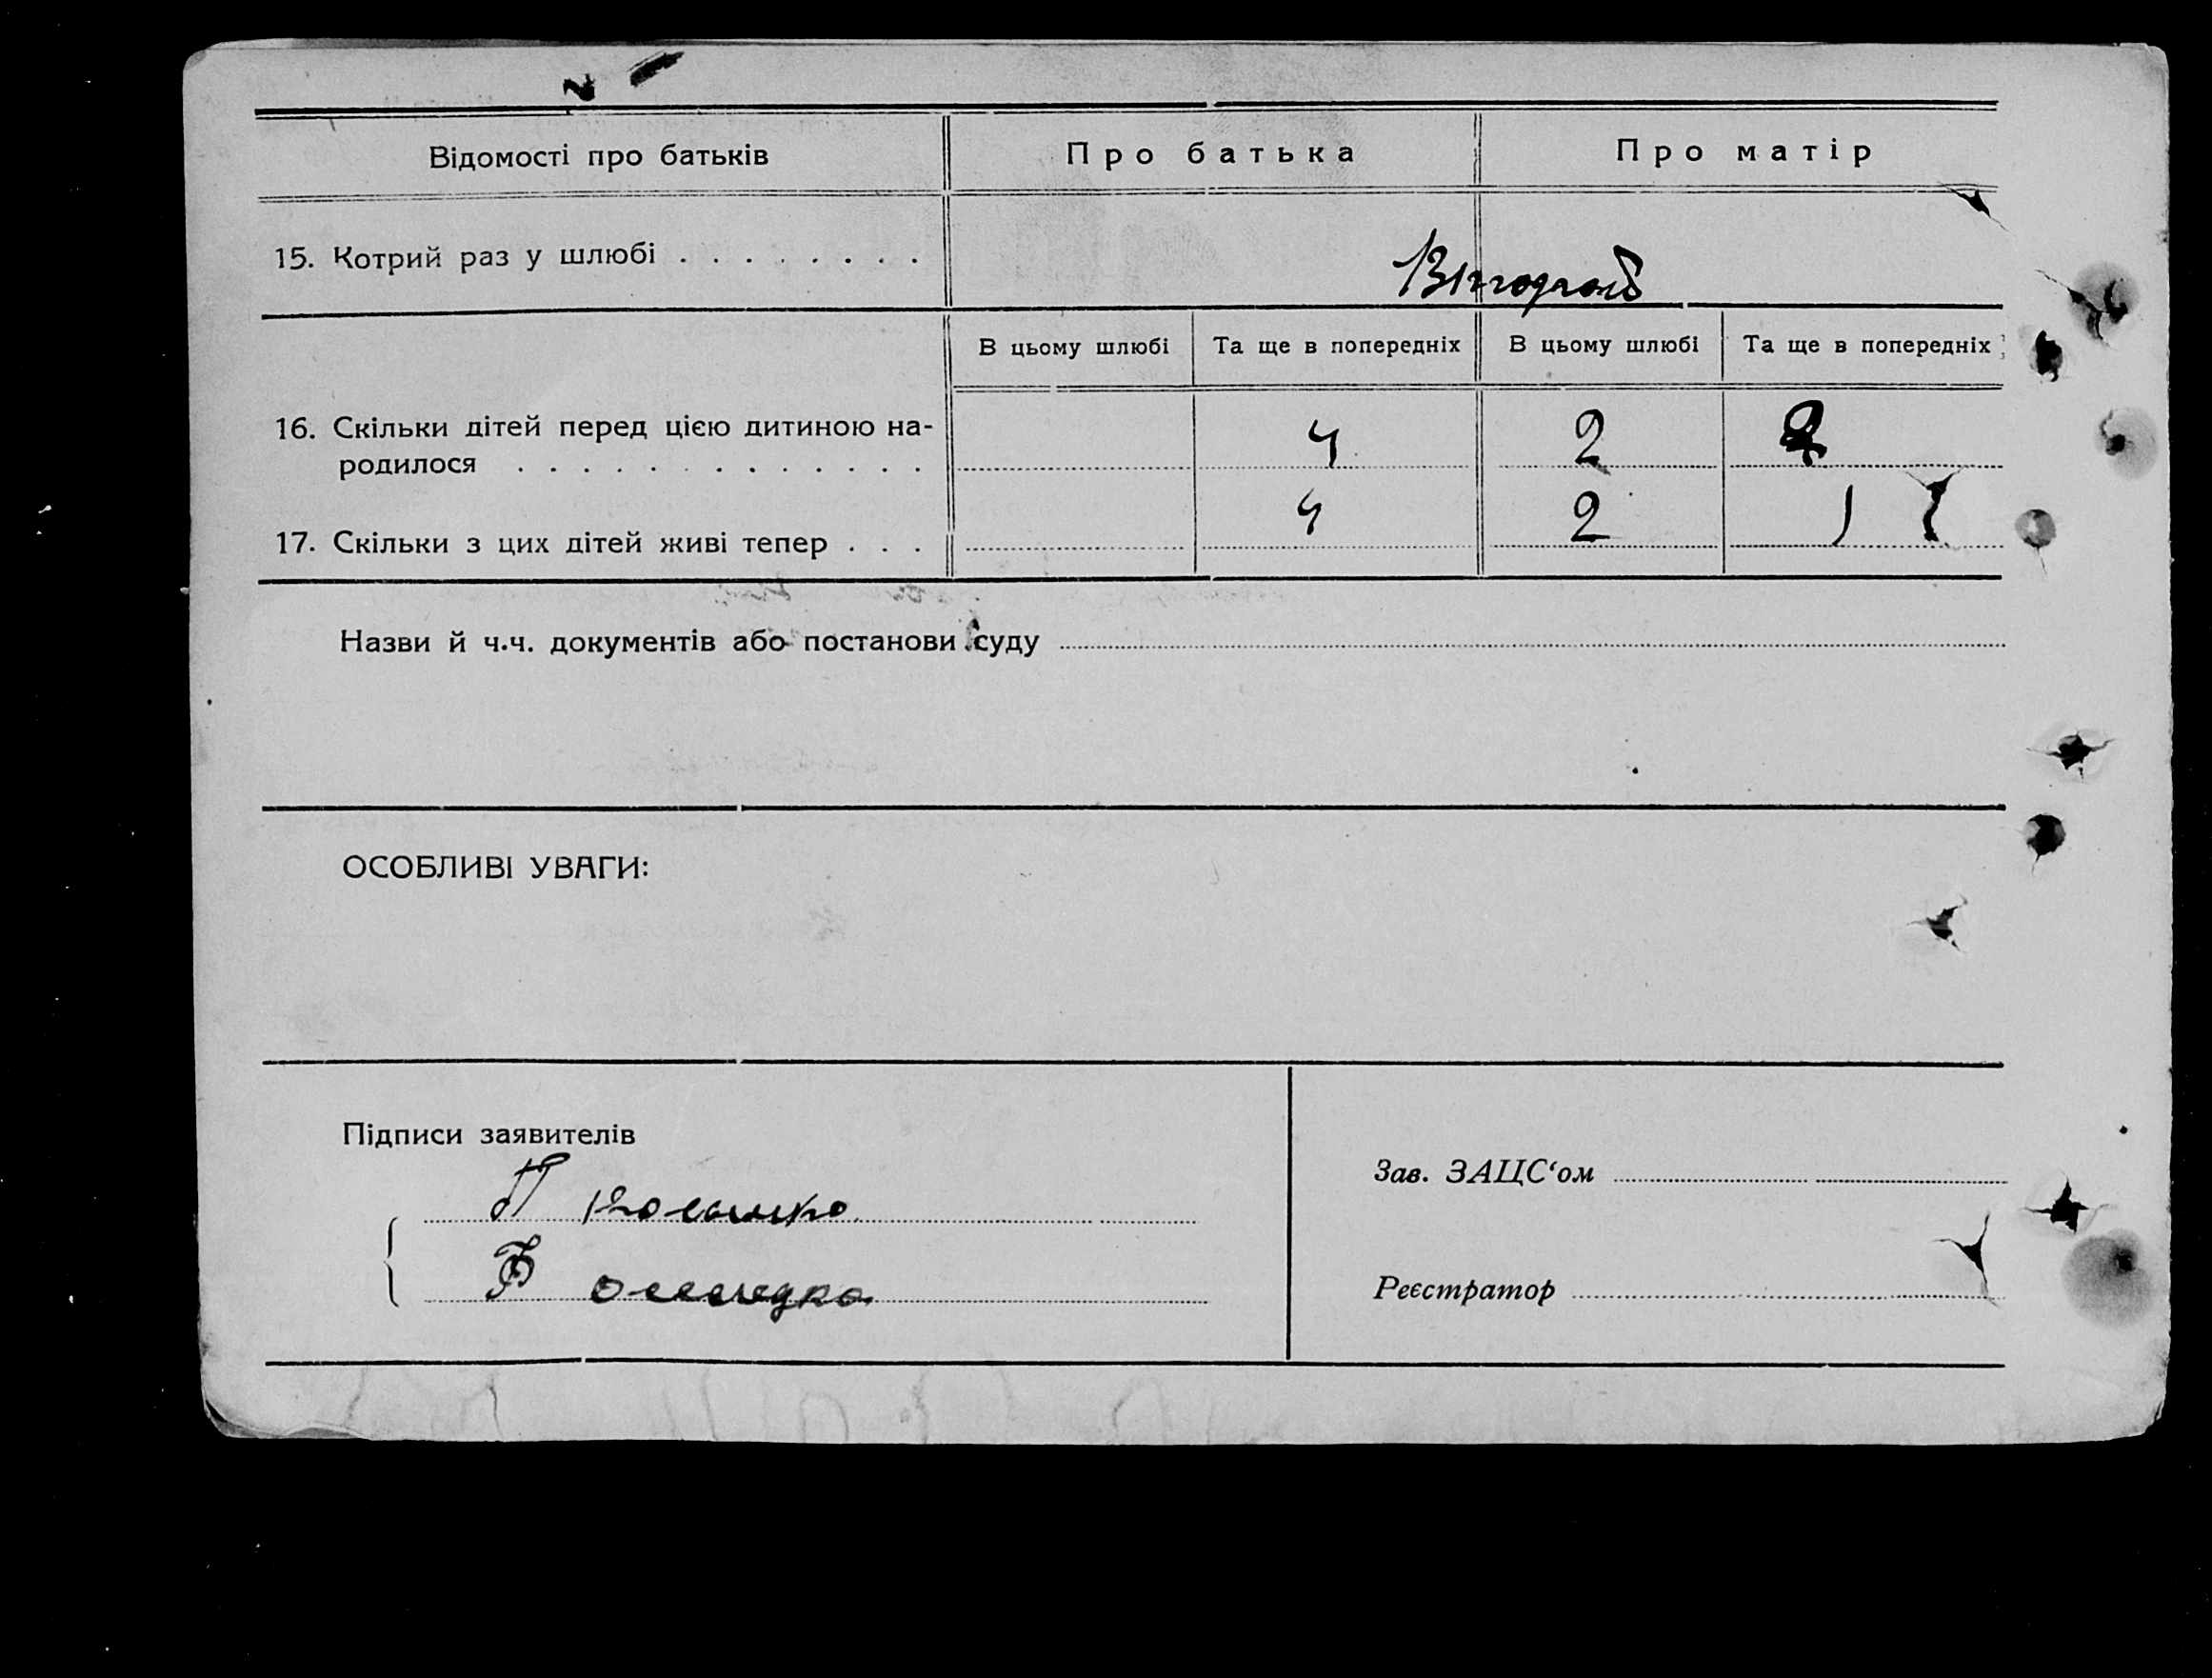 Відомості про батьків
Про батька
Про матір
15. Котрий раз у шлюбі . . . . . . . .
В цьому шлюбі
Та ще в попередніх
В цьому шлюбі
Та ще в попередніх
16. Скільки дітей перед цією дитиною на-
родилося . . . . . . . . . . . . .
4
2
17. Скільки з цих дітей живі тепер . . .
4
2
1
Назви й ч.ч. документів або постанови суду
ОСОБЛИВІ УВАГИ:
Підписи заявителів
П
Зав. ЗАЦС‘ом
Реєстратор